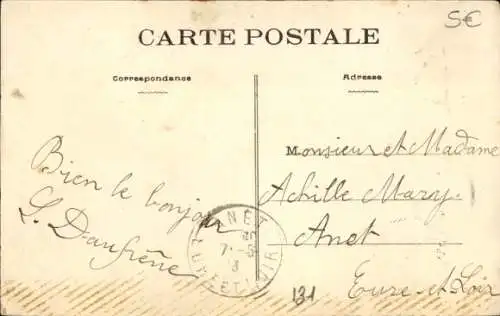 5€
CARTE POSTALE
Correspondance
Adresse
Bien le bonjour
L. Daufrêne
Monsieur et Madame
Achille Mary
Anet
Eure-et-Loir
ANET
7-5
EURE ET LOIR
131